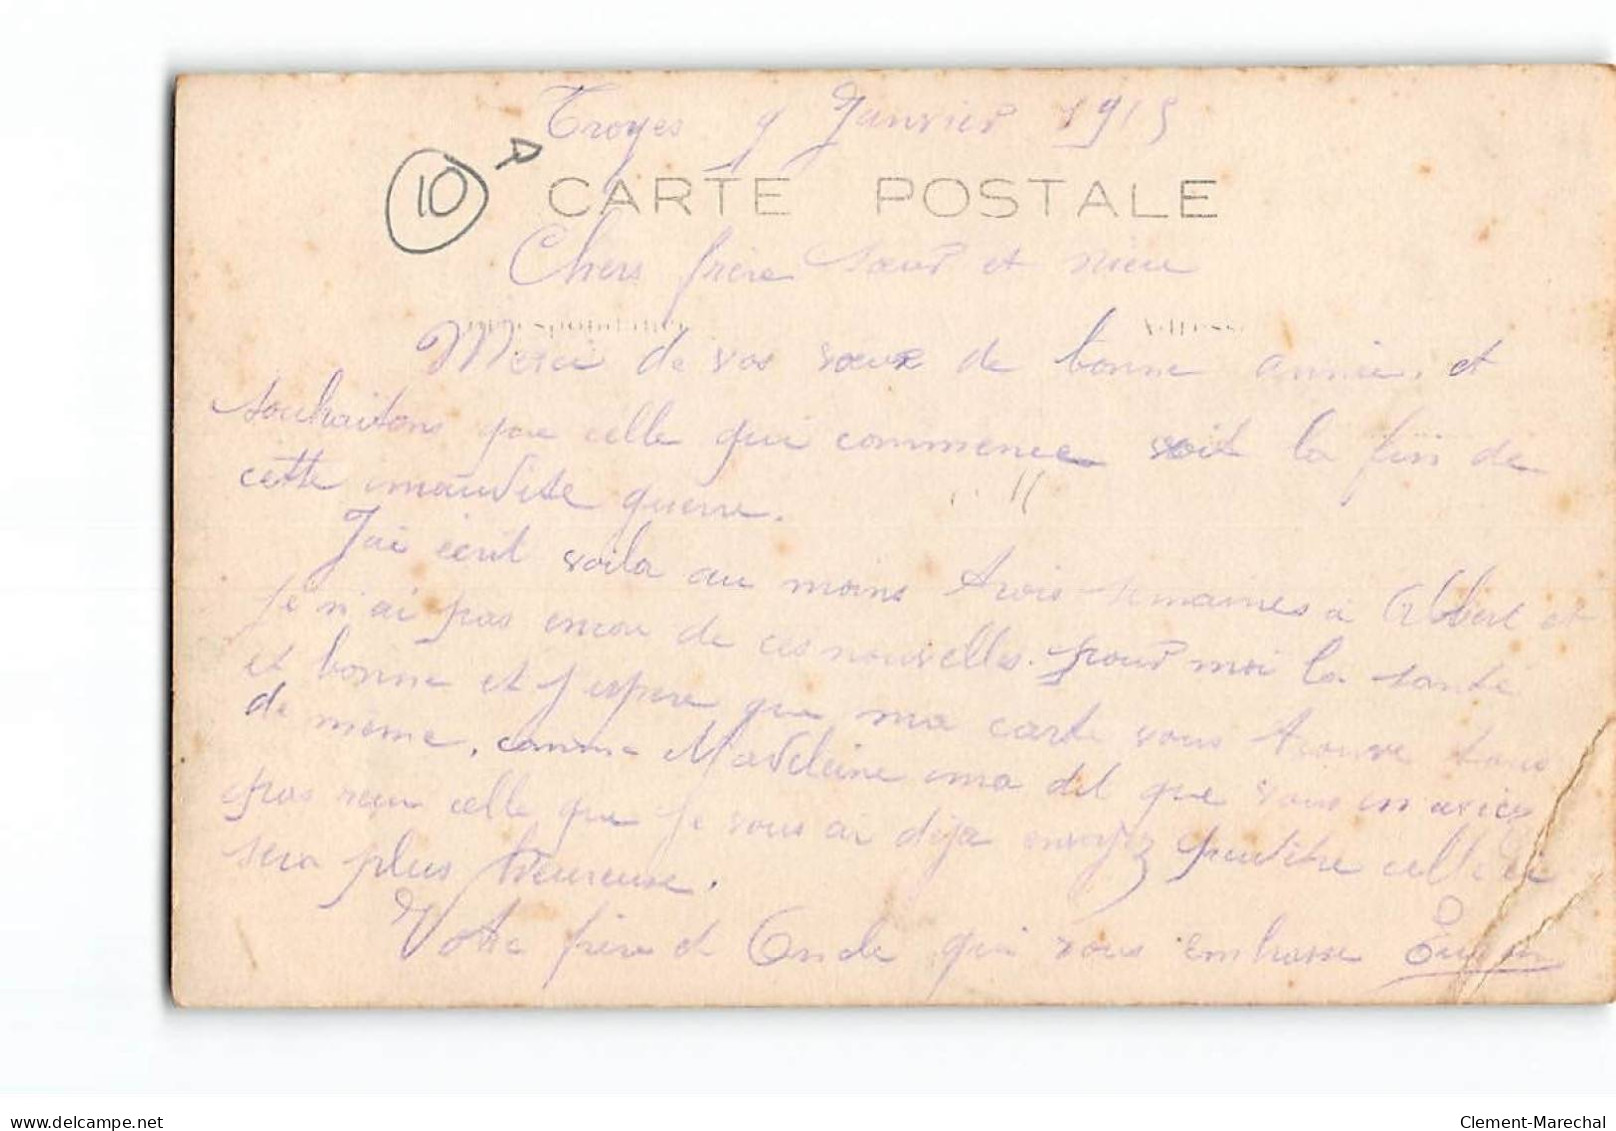 Troyes 9 Janvier 1915
10
CARTE POSTALE
Chers frère sœur et nieu
Correspondance Adresse
Merci de vos vœux de bonne année. et
souhaitons que celle qui commence soit la fin de
cette maudite guerre.
J'ai écrit voila au moins trois semaines à Albert et
je n'ai pas encore de ces nouvelles. pour moi la santé
et bonne et j'espere que ma carte vous trouve tous
de même. comme Madeleine ma dit que vous en aviez
pas reçu celle que je vous ai déja envoyez peutêtre celle ci
sera plus heureuse.
Votre frère et Oncle qui vous embrasse Eugen
www.delcampe.net Clement-Marechal